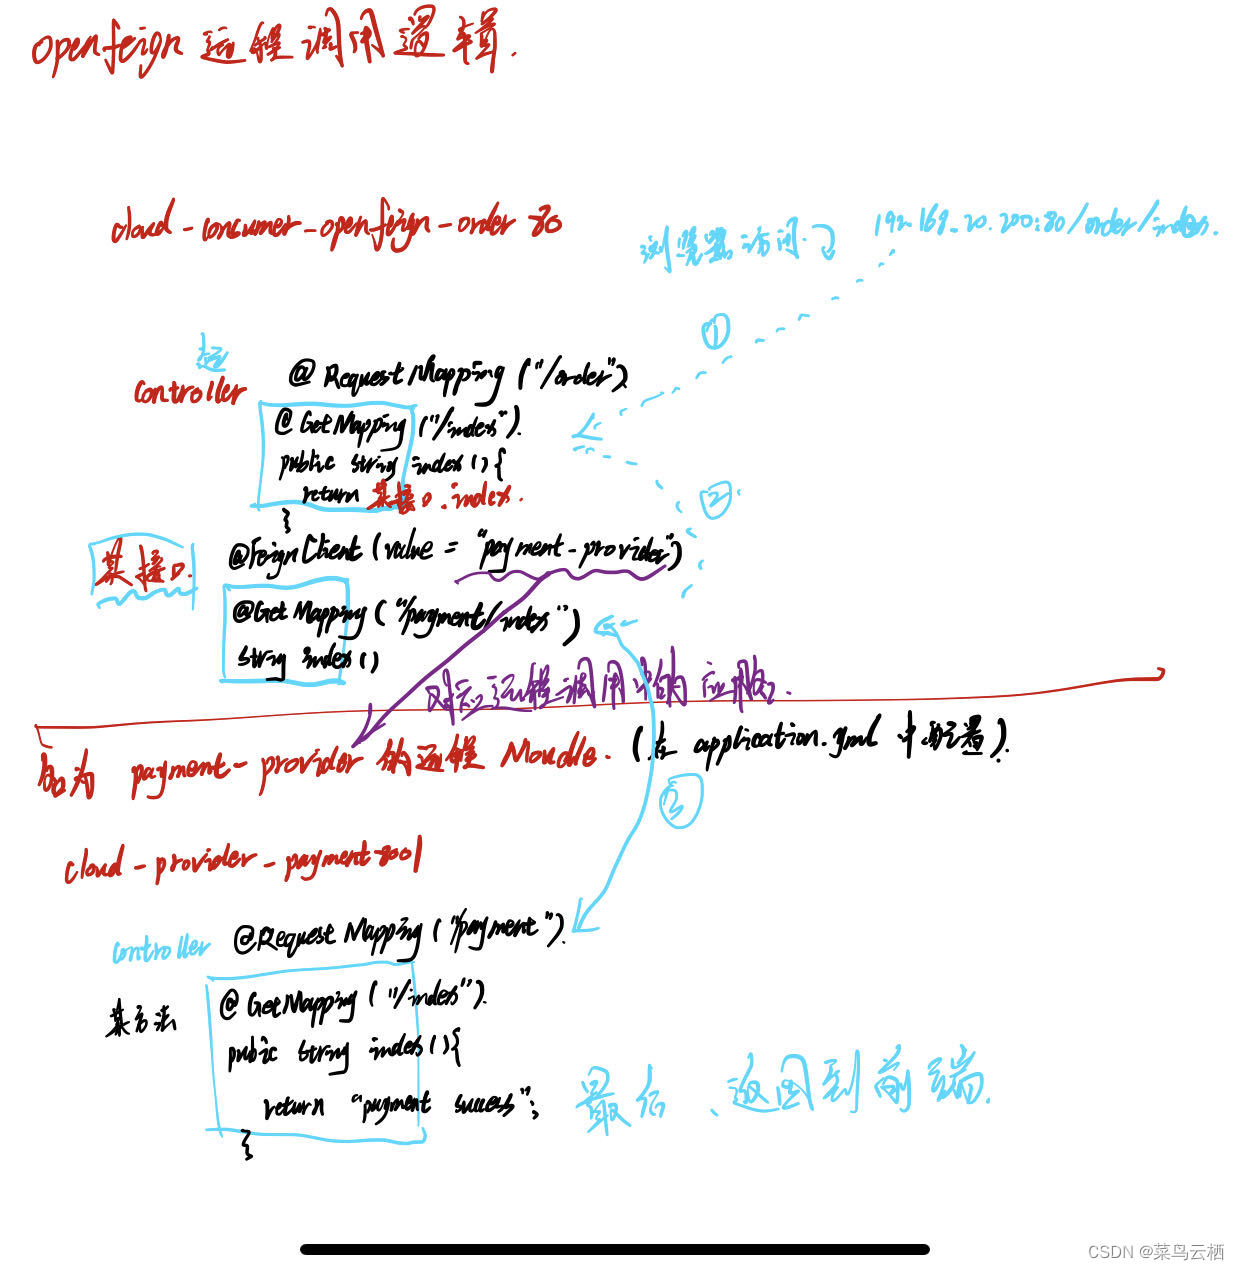 openfeign 远程调用逻辑.
cloud-consumer-openfeign-order 80
浏览器访问
192.168.20.200:80/order/index.
①
Controller
@RequestMapping("/order")
@GetMapping("/index").
public string index(){
return 某接口.index.
}
②
某接口.
@FeignClient(value = "payment-provider")
@GetMapping("/payment/index")
string index()
对应远程调用
名为 payment-provider 的远程 Moudle. (在 application.yml 中配置).
③
cloud-provider-payment8001
controller
@RequestMapping("/payment").
某方法
@GetMapping("/index").
public string index(){
return "payment success";
}
最后、返回到前端.
CSDN @菜鸟云栖